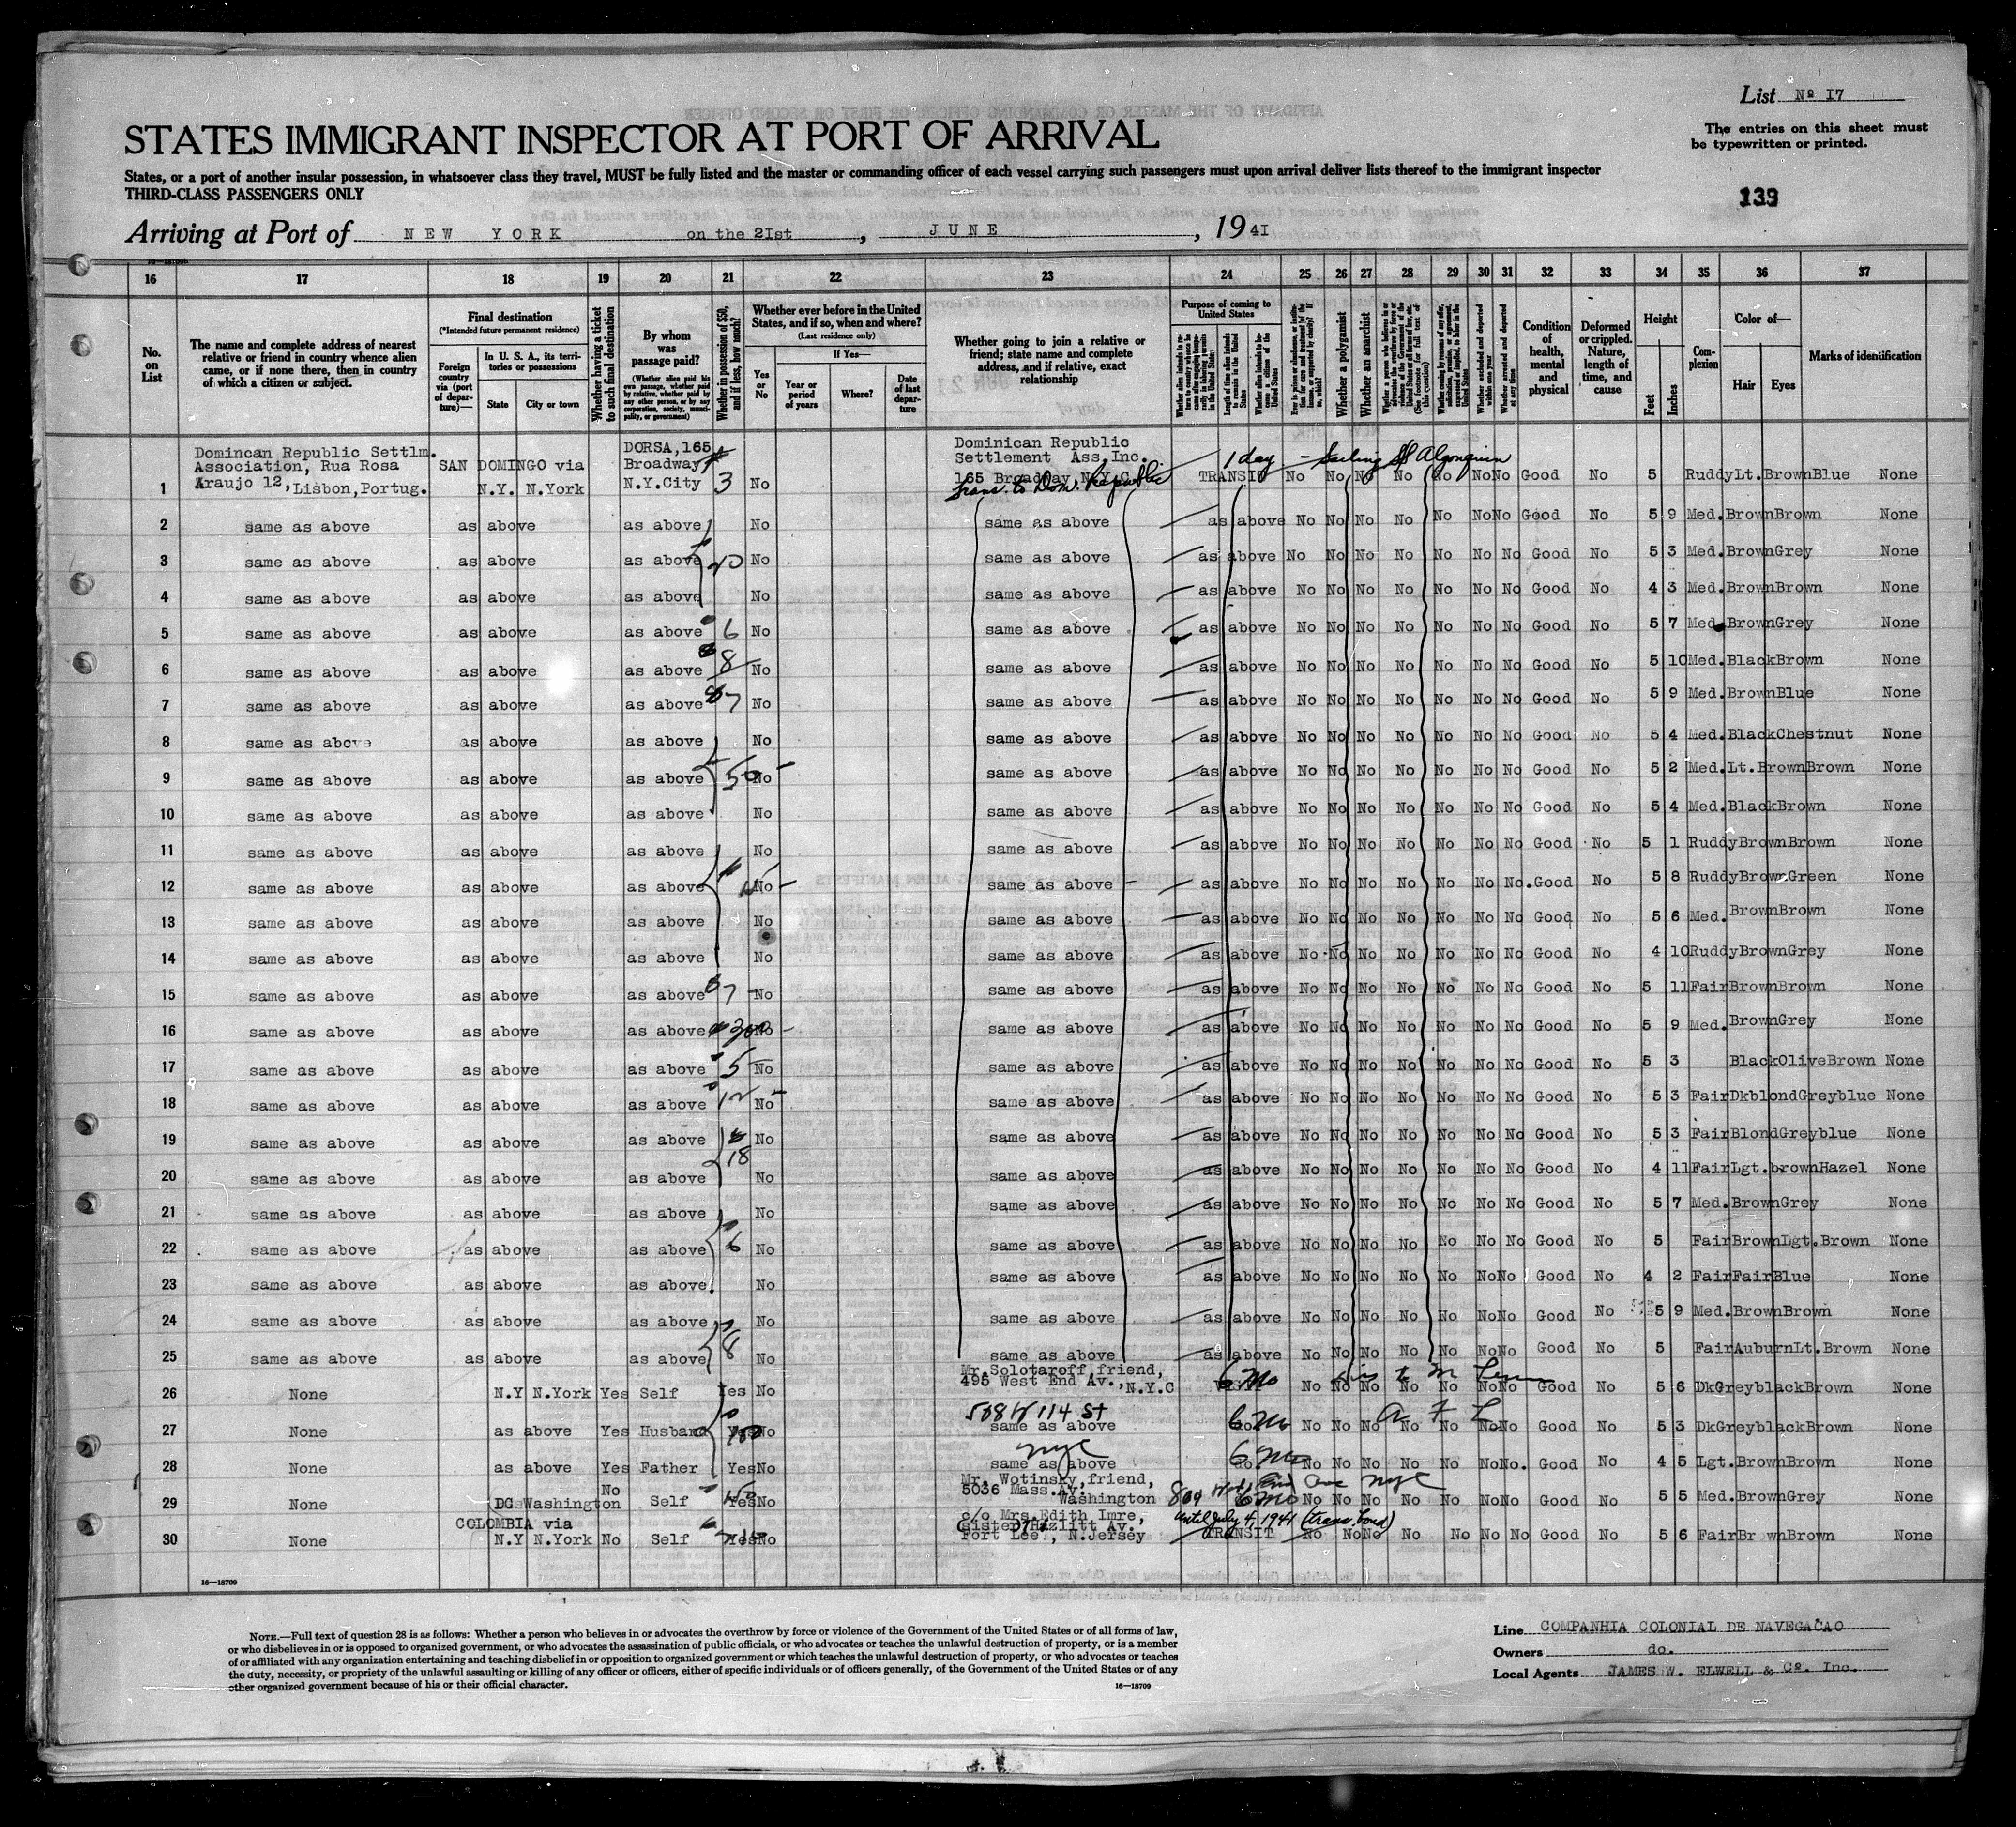 List No 17
STATES IMMIGRANT INSPECTOR AT PORT OF ARRIVAL
The entries on this sheet must
be typewritten or printed.
States, or a port of another insular possession, in whatsoever class they travel, MUST be fully listed and the master or commanding officer of each vessel carrying such passengers must upon arrival deliver lists thereof to the immigrant inspector
THIRD-CLASS PASSENGERS ONLY
139
Arriving at Port of NEW YORK on the 21st, JUNE, 1941
16 17 18 19 20 21 22 23 24 25 26 27 28 29 30 31 32 33 34 35 36 37
No. on List
The name and complete address of nearest relative or friend in country whence alien came, or if none there, then in country of which a citizen or subject.
Final destination
(*Intended future permanent residence)
Foreign country via (port of departure)—
In U. S. A., its territories or possessions
State
City or town
Whether having a ticket to such final destination
By whom was passage paid?
(Whether alien paid his own passage, whether paid by relative, whether paid by any other person, or by any corporation, society, municipality, or government)
Whether in possession of $50, and if less, how much?
Whether ever before in the United States, and if so, when and where?
(Last residence only)
Yes or No
If Yes—
Year or period of years
Where?
Date of last departure
Whether going to join a relative or friend; state name and complete address, and if relative, exact relationship
Purpose of coming to United States
Length of time alien intends to remain in the United States
Whether a polygamist
Whether an anarchist
Whether excluded and deported within one year
Whether arrested and deported at any time
Condition of health, mental and physical
Deformed or crippled. Nature, length of time, and cause
Height
Feet
Inches
Complexion
Color of—
Hair
Eyes
Marks of identification
Domincan Republic Settlm.
Association, Rua Rosa
Araujo 12, Lisbon, Portug.
SAN DOMINGO via
N.Y. N.York
DORSA, 165
Broadway
N.Y.City
Dominican Republic
Settlement Ass, Inc.
165 Broadway N.Y.C.
Trans. to Dom. Republic
1 day - Sailing SS Algonquin
1 3 No TRANSIT No No No No No No No Good No 5 Ruddy Lt.Brown Blue None
2 same as above as above as above No same as above as above No No No No No No No Good No 5 9 Med. Brown Brown None
3 same as above as above as above 20 No same as above as above No No No No No No No Good No 5 3 Med. Brown Grey None
4 same as above as above as above No same as above as above No No No No No No No Good No 4 3 Med. Brown Brown None
5 same as above as above as above 6 No same as above as above No No No No No No No Good No 5 7 Med. Brown Grey None
6 same as above as above as above 8 No same as above as above No No No No No No No Good No 5 10 Med. Black Brown None
7 same as above as above as above 7 No same as above as above No No No No No No No Good No 5 9 Med. Brown Blue None
8 same as above as above as above No same as above as above No No No No No No No Good No 5 4 Med. Black Chestnut None
9 same as above as above as above 50 No same as above as above No No No No No No No Good No 5 2 Med. Lt.Brown Brown None
10 same as above as above as above No same as above as above No No No No No No No Good No 5 4 Med. Black Brown None
11 same as above as above as above No same as above as above No No No No No No No Good No 5 1 Ruddy Brown Brown None
12 same as above as above as above No same as above as above No No No No No No No. Good No 5 8 Ruddy Brown Green None
13 same as above as above as above No same as above as above No No No No No No No Good No 5 6 Med. Brown Brown None
14 same as above as above as above No same as above as above No No No No No No No Good No 4 10 Ruddy Brown Grey None
15 same as above as above as above 7 No same as above as above No No No No No No No Good No 5 11 Fair Brown Brown None
16 same as above as above as above 300 No same as above as above No No No No No No No Good No 5 9 Med. Brown Grey None
17 same as above as above as above 5 No same as above as above No No No No No No No Good No 5 3 Black Olive Brown None
18 same as above as above as above 12 No same as above as above No No No No No No No Good No 5 3 Fair Dkblond Greyblue None
19 same as above as above as above No same as above as above No No No No No No No Good No 5 3 Fair Blond Greyblue None
18
20 same as above as above as above No same as above as above No No No No No No No Good No 4 11 Fair Lgt.brown Hazel None
21 same as above as above as above No same as above as above No No No No No No No Good No 5 7 Med. Brown Grey None
22 same as above as above as above 6 No same as above as above No No No No No No No Good No 5 Fair Brown Lgt.Brown None
23 same as above as above as above No same as above as above No No No No No No No Good No 4 2 Fair Fair Blue None
24 same as above as above as above No same as above as above No No No No No No No Good No 5 9 Med. Brown Brown None
25 same as above as above as above 8 No same as above as above No No No No No No No Good No 5 Fair Auburn Lt.Brown None
Mr. Solotaroff, friend,
495 West End Av., N.Y.C
26 None N.Y N.York Yes Self Yes No 6 Mo No No No No No No No Good No 5 6 Dk Greyblack Brown None
508 W 114 St
27 None as above Yes Husband Yes No same as above 6 Mo No No No No No No No Good No 5 3 Dk Greyblack Brown None
NYC
28 None as above Yes Father Yes No same as above 6 Mo No No No No No No No. Good No 4 5 Lgt. Brown Brown None
Mr. Wotinsky, friend,
5036 Mass. Av.
Washington
809 West End Ave NYC
29 None DC Washington No Self Yes No 6 Mo No No No No No No No Good No 5 5 Med. Brown Grey None
COLOMBIA via
c/o Mrs. Edith Imre,
(sister) Hazlitt Av.
Fort Lee, N.Jersey
until July 4, 1941 (trans. bond)
30 None N.Y N.York No Self Yes No TRANSIT No No No No No No No Good No 5 6 Fair Br wn Brown None
16—18709
NOTE.—Full text of question 28 is as follows: Whether a person who believes in or advocates the overthrow by force or violence of the Government of the United States or of all forms of law,
or who disbelieves in or is opposed to organized government, or who advocates the assassination of public officials, or who advocates or teaches the unlawful destruction of property, or is a member
of or affiliated with any organization entertaining and teaching disbelief in or opposition to organized government or which teaches the unlawful destruction of property, or who advocates or teaches
the duty, necessity, or propriety of the unlawful assaulting or killing of any officer or officers, either of specific individuals or of officers generally, of the Government of the United States or of any
other organized government because of his or their official character.
16—18709
Line COMPANHIA COLONIAL DE NAVEGAÇAO
Owners do.
Local Agents JAMES W. ELWELL & Co. Inc.